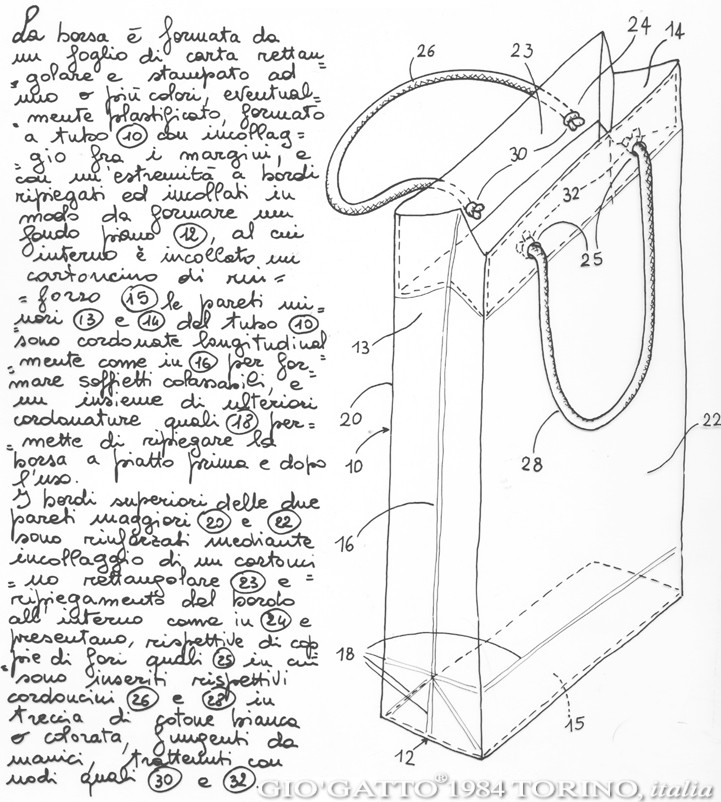 La borsa è formata da
un foglio di carta rettan=
=golare e stampato ad
uno o più colori, eventual=
=mente plastificato, formato
a tubo 10 con incollag=
=gio fra i margini, e
con un'estremità a bordi
ripiegati ed incollati in
modo da formare un
fondo piano 12, al cui
interno è incollato un
cartoncino di rin=
=forzo 15 le pareti mi=
=nori 13 e 14 del tubo 10
sono cordonate longitudinal
=mente come in 16 per for=
mare soffietti colassabili, e=
un insieme di ulteriori
cordonature quali 18 per=
=mette di ripiegare la
borsa a piatto prima e dopo
l'uso.
I bordi superiori delle due
pareti maggiori 20 e 22
sono rinforzati mediante
incollaggio di un cartonci
=no rettangolare 23 e=
ripiegamento del bordo
all'interno come in 24 e
presentano, rispettive di cop
=pie di fori quali 25 in cui
sono inseriti rispettivi
cordoncini 26 e 28 in
treccia di cotone bianca
o colorata, fungenti da
manici, trattenuti con
nodi quali 30 e 32.
26
23
24
14
30
32
25
13
20
10
28
22
16
18
15
12
GIO'GATTO® 1984 TORINO, italia